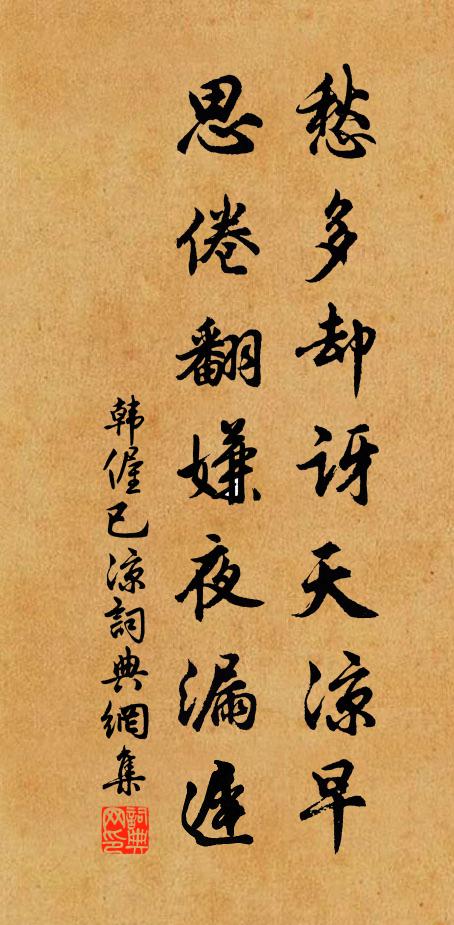 愁多却讶天凉早
思倦翻嫌夜漏遲
韩偓已凉詞典網集
詞典网印